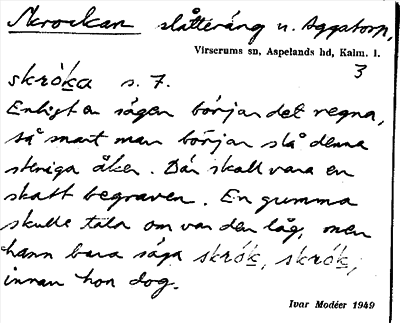 Skrockan slåtteräng u. Aggatorp,
Virserums sn, Aspelands hd, Kalm. l.
3
skróka s. 7.
Enligt en sägen börjar det regna,
så snart man börjar slå denna
steniga åker. Där skall vara en
skatt begraven. En gumma
skulle tala om var den låg, men
hann bara säga skrók, skrók,
innan hon dog.
Ivar Modéer 1949